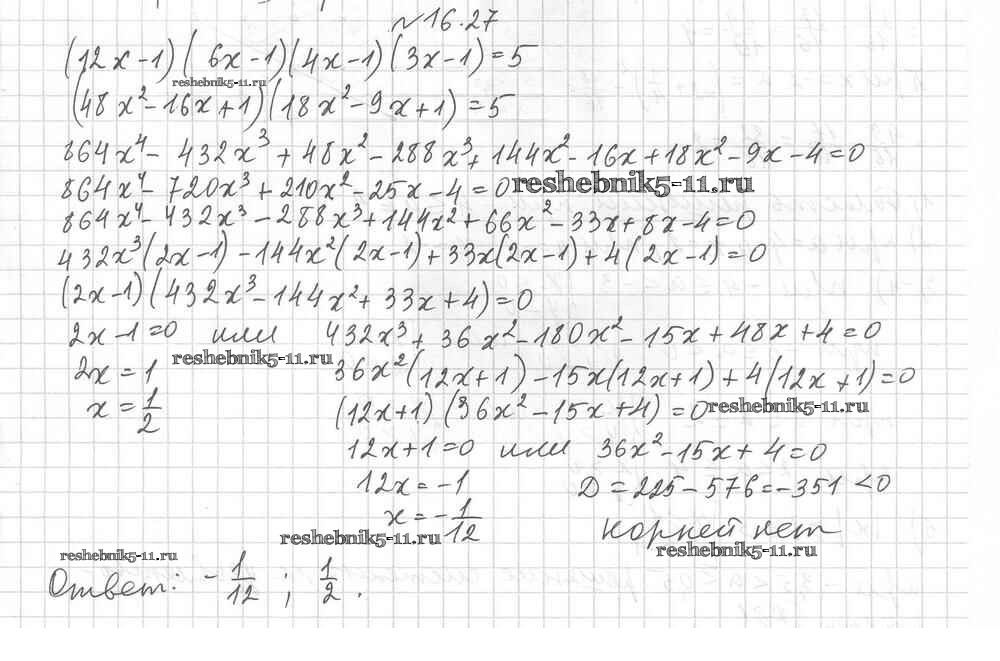 №16.27
(12x-1)(6x-1)(4x-1)(3x-1)=5
reshebnik5-11.ru
(48x²-16x+1)(18x²-9x+1)=5
864x⁴- 432x³+48x²-288x³+144x²-16x+18x²-9x-4=0
864x⁴-720x³+210x²-25x-4=0 reshebnik5-11.ru
864x⁴-432x³-288x³+144x²+66x²-33x+8x-4=0
432x³(2x-1)-144x²(2x-1)+33x(2x-1)+4(2x-1)=0
(2x-1)(432x³-144x²+33x+4)=0
2x-1=0 или 432x³+36x²-180x²-15x+48x+4=0
reshebnik5-11.ru
2x=1 36x²(12x+1)-15x(12x+1)+4(12x+1)=0
x=1/2 (12x+1)(36x²-15x+4)=0 reshebnik5-11.ru
12x+1=0 или 36x²-15x+4=0
12x=-1 D=225-576=-351<0
x=-1/12 корней нет
reshebnik5-11.ru reshebnik5-11.ru
reshebnik5-11.ru
Ответ: -1/12; 1/2.